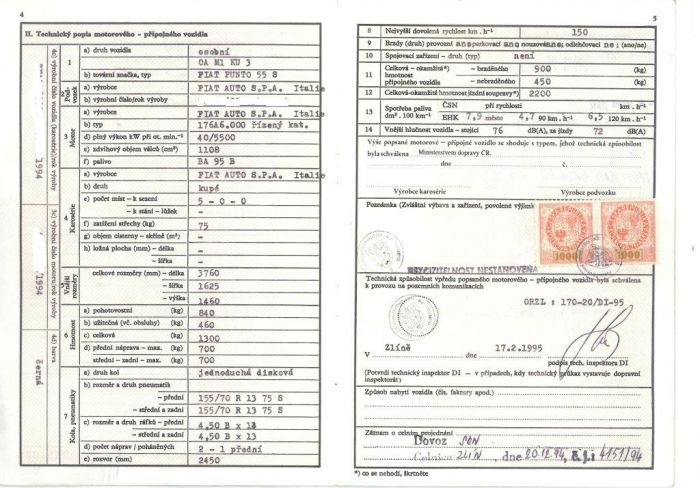 4
II. Technický popis motorového – přípojného vozidla
1
a) druh vozidla
osobní
OA M1 KU 3
b) tovární značka, typ
FIAT PUNTO 55 S
Podvozek
a) výrobce
FIAT AUTO S.P.A. Italie
b) výrobní číslo/rok výroby
3 Motor
a) výrobce
FIAT AUTO S.P.A. Italie
b) typ
176A6.000 řízený kat.
d) plný výkon kW při ot. min.-1
40/5500
e) zdvihový objem válců (cm³)
1108
f) palivo
BA 95 B
4 Karosérie
a) výrobce
FIAT AUTO S.P.A. Italie
b) druh
kupé
e) počet míst – k sezení
5 - 0 - 0
– k stání – lůžek
–
f) zatížení střechy (kg)
75
g) objem cisterny – skříně (m³)
–
h) ložná plocha (mm) – délka
–
– šířka
–
5 Vnější rozměry
celkové rozměry (mm) – délka
3760
– šířka
1625
– výška
1460
6 Hmotnost
a) pohotovostní (kg)
840
b) užitečná (vč. obsluhy) (kg)
460
c) celková (kg)
1300
d) přední náprava – max. (kg)
700
střední – zadní – max. (kg)
700
7 Kola, pneumatiky
a) druh kol
jednoduchá disková
b) rozměr a druh pneumatik
– přední
155/70 R 13 75 S
– střední a zadní
155/70 R 13 75 S
c) rozměr a druh ráfků – přední
4,50 B x 13
– střední a zadní
4,50 B x 13
d) počet náprav / poháněných
2 - 1 přední
e) rozvor (mm)
2450
4e) výrobní číslo vozidla (karosérie)/rok výroby
1994
3c) výrobní číslo motoru/rok výroby
1994
4d) barva
černá
5
8 Nejvyšší dovolená rychlost km . h-1 150
9 Brady (druh) provozní ano parkovací ano nouzová ne; odlehčovací ne; (ano/ne)
10 Spojovací zařízení – druh (typ) není
11 Celková – okamžitá*) hmotnost přípojného vozidla
– brzděného 900 (kg)
– nebrzděného 450 (kg)
12 Celková-okamžitá hmotnost jízdní soupravy*) 2200 (kg)
13 Spotřeba paliva dm³ . 100 km-1
ČSN při rychlosti km . h-1
EHK 7,9 město 4,7 90 km . h-1 6,5 120 km . h-1
14 Vnější hlučnost vozidla – stojící 76 dB(A), za jízdy 72 dB(A)
Výše popsané motorové – přípojné vozidlo se shoduje s typem, jehož technická způsobilost
byla schválena Ministerstvem dopravy ČR.
Výrobce karosérie
Výrobce podvozku
Poznámka (Zvláštní výbava a zařízení, povolené výjimky
1000
1000
Technická způsobilost vpředu popsaného motorového – přípojného vozidla byla schválena
k provozu na pozemních komunikacích
ORZL : 170-20/DI-95
V Zlíně dne 17.2.1995
podpis tech. inspektora DI
(Potvrdí technický inspektor DI – v případech, kdy technický průkaz vystavuje dopravní
inspektorát)
Způsob nabytí vozidla (čís. faktury apod.)
Záznam o celním projednání
Dovoz
Celnice ZLÍN, dne 20.12.94, č.j. 4151/94
*) co se nehodí, škrtněte